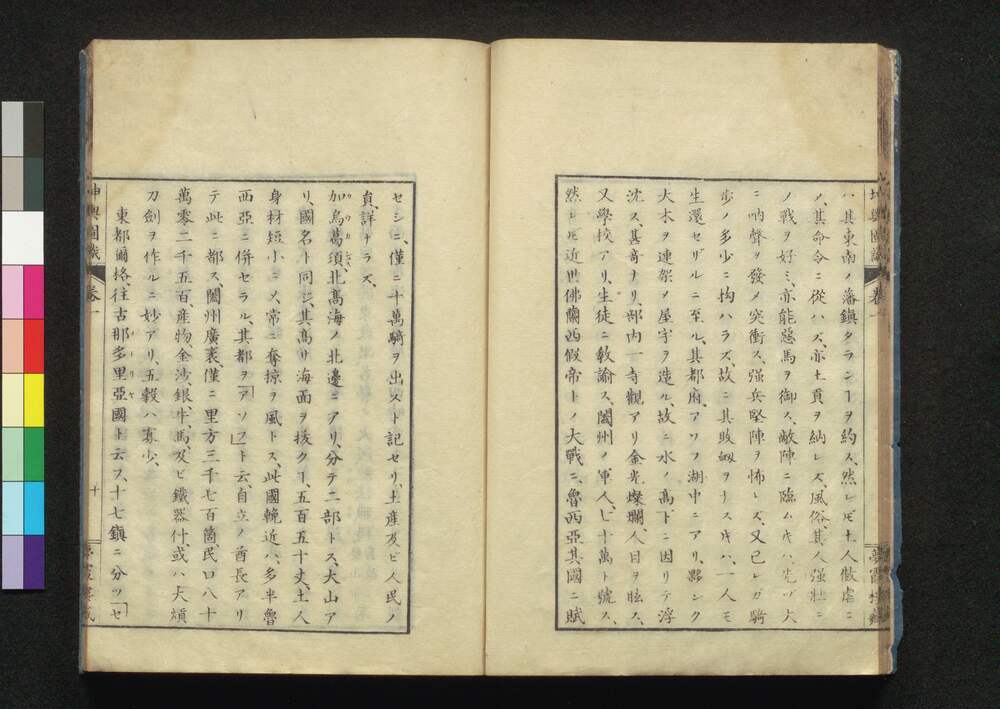 坤輿圖識
卷一
夢霞樓藏
ハ其東南ノ藩鎭タランヿヲ約ス、然レ𪜈土人傲虐ニ
メ、其命令ニ從ハズ、亦土貢ヲ納レズ、風俗、其人強壯ニ
ノ戰ヲ好ミ、亦能惡馬ヲ御ス、敵陣ニ臨ムキハ、先ヅ大
ニ吶聲ヲ發メ突衝ス、强兵堅陣ヲ怖レズ、又已レガ騎
歩ノ多少ニ拘ハラズ、故ニ其敗衂ヲナスキハ、一人モ
生還セザルニ至ル、其都府、アソフ湖中ニアリ、夥シク
大木ヲ連架メ屋宇ヲ造ル、故ニ水ノ高下ニ因リテ浮
沈ス、甚奇ナリ、部内一寺觀アリ金光燦爛、人目ヲ眩ス、
又學挍アリ、生徒ニ敎諭ス、闔州ノ軍人、七十萬ト號ス、
然レ𪜈近世佛蘭西假帝トノ大戰ニ、魯西亞其國ニ賦
セシニ、僅ニ十萬騎ヲ出スト記セリ、土産及ビ人民ノ
貢、詳ナラズ、
加烏葛須、北高海ノ北邊ニアリ、分テ二部トス、大山ア
リ、國名ト同シ、其高リ海面ヲ拔クヿ、五百五十丈、土人
身材短小ニメ、常ニ奪掠ヲ風トス、此國輓近ハ、多半魯
西亞ニ併セラル、其都ヲ「アソフ」ト云、自立ノ酋長アリ
テ此ニ都ス、闔州廣袤、僅ニ里方三千七百箇、民口八十
萬零二千五百、産物、金沙、銀、牛、馬及ビ鐵器什、或ハ大煩、
刀劍ヲ作ルニ妙アリ、五穀ハ寡少、
東都爾格、往古那多里亞國ト云フ、十七鎭ニ分ツ「セ
坤輿圖識
卷一
十
夢霞樓藏